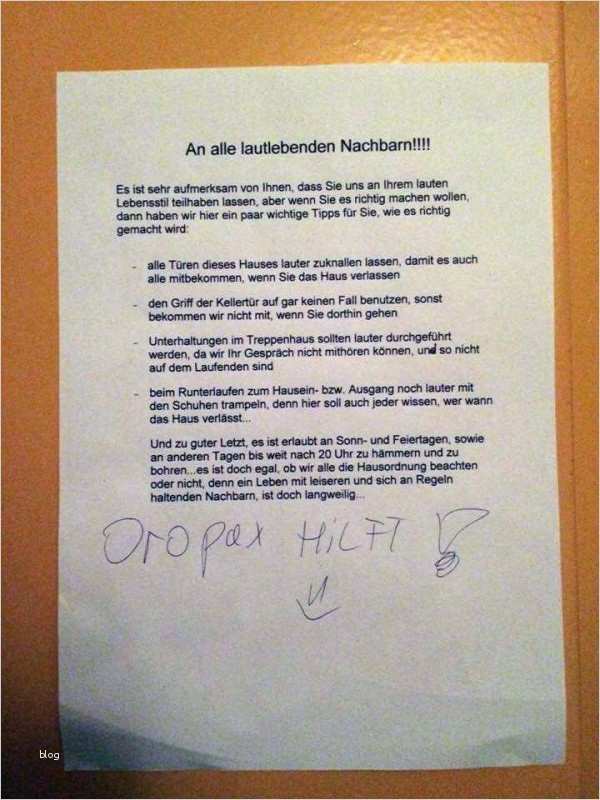 An alle lautlebenden Nachbarn!!!!
Es ist sehr aufmerksam von Ihnen, dass Sie uns an Ihrem lauten
Lebensstil teilhaben lassen, aber wenn Sie es richtig machen wollen,
dann haben wir hier ein paar wichtige Tipps für Sie, wie es richtig
gemacht wird:
- alle Türen dieses Hauses lauter zuknallen lassen, damit es auch
alle mitbekommen, wenn Sie das Haus verlassen
- den Griff der Kellertür auf gar keinen Fall benutzen, sonst
bekommen wir nicht mit, wenn Sie dorthin gehen
- Unterhaltungen im Treppenhaus sollten lauter durchgeführt
werden, da wir Ihr Gespräch nicht mithören können, und so nicht
auf dem Laufenden sind
- beim Runterlaufen zum Hausein- bzw. Ausgang noch lauter mit
den Schuhen trampeln, denn hier soll auch jeder wissen, wer wann
das Haus verlässt...
Und zu guter Letzt, es ist erlaubt an Sonn- und Feiertagen, sowie
an anderen Tagen bis weit nach 20 Uhr zu hämmern und zu
bohren...es ist doch egal, ob wir alle die Hausordnung beachten
oder nicht, denn ein Leben mit leiseren und sich an Regeln
haltenden Nachbarn, ist doch langweilig...
Oropax HiLFT !
blog